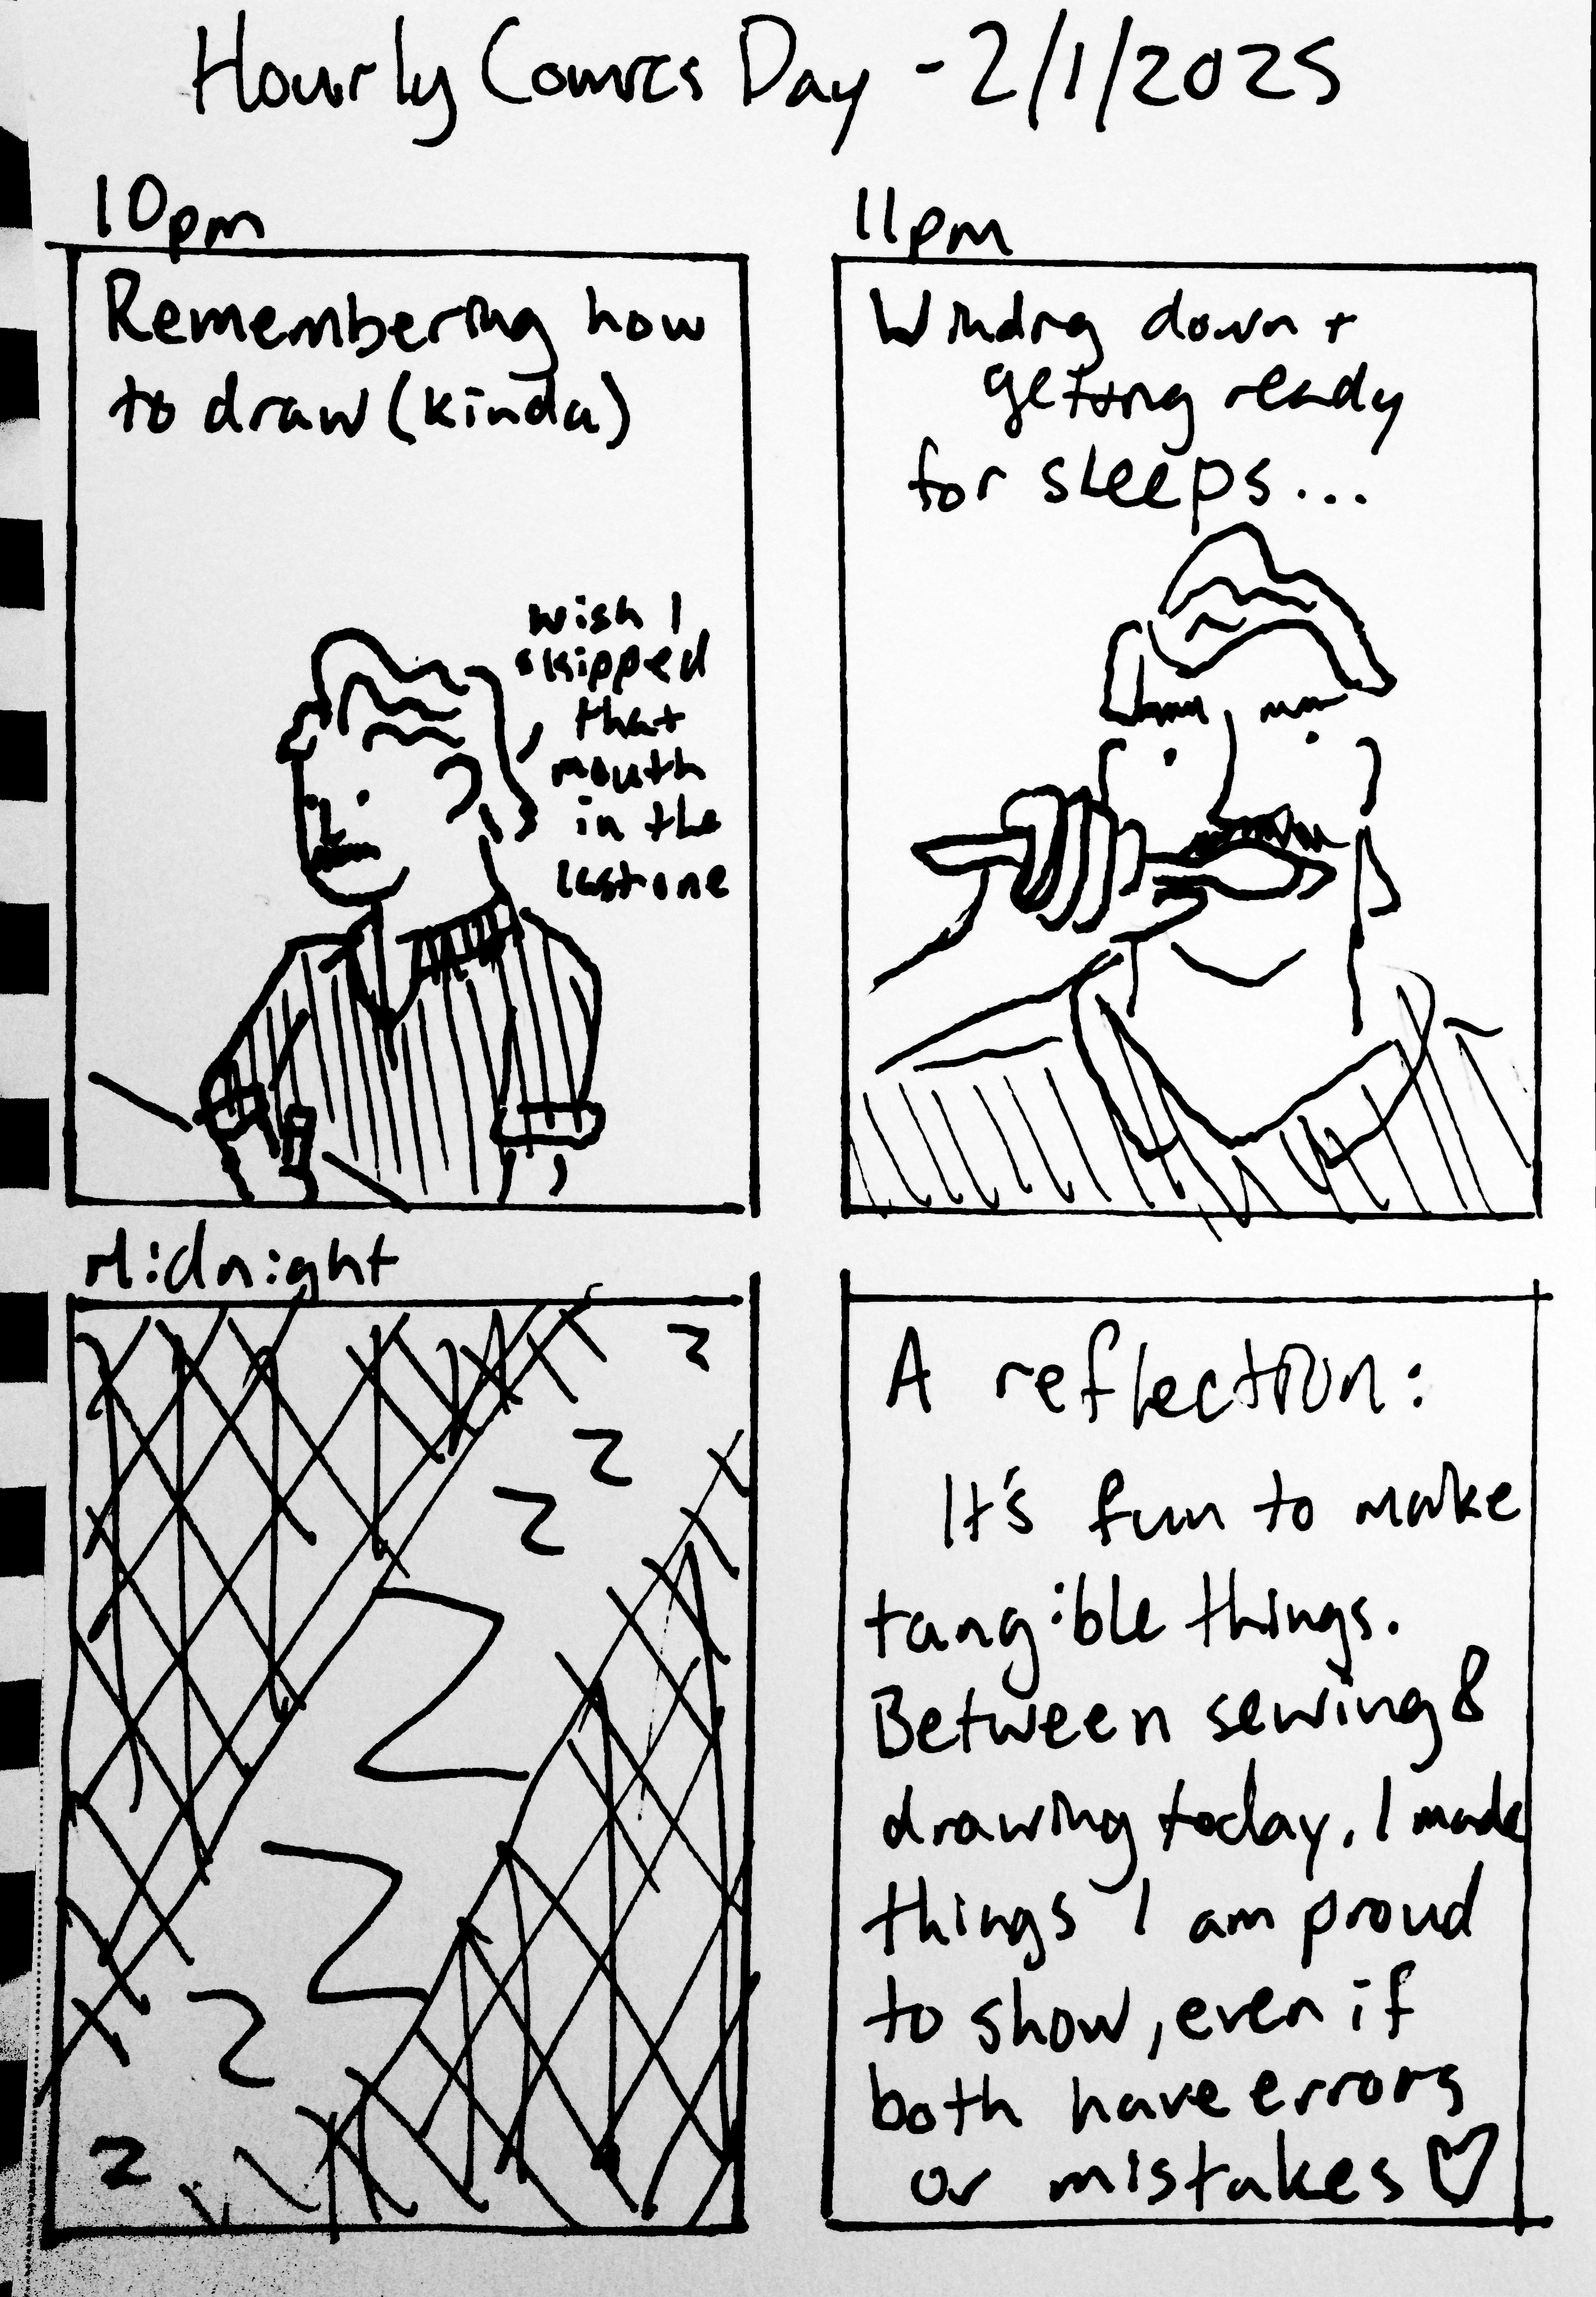 Hourly Comics Day - 2/1/2025
10pm
Remembering how
to draw (kinda)
wish I
skipped
that
mouth
in the
last one
11pm
Winding down +
getting ready
for sleeps...
Midnight
z
z
z
z
z
z
z
A reflection:
It's fun to make
tangible things.
Between sewing &
drawing today, I made
things I am proud
to show, even if
both have errors
or mistakes